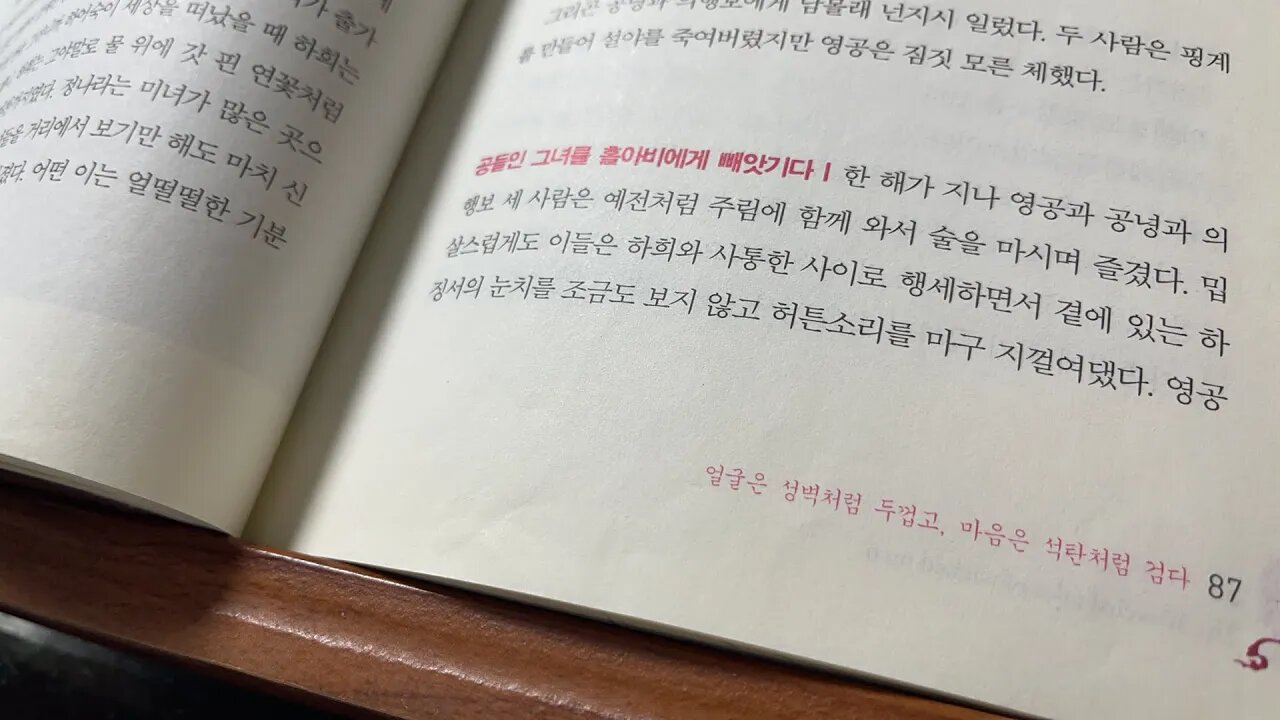 가 출가
세상을 떠났을 때 하희는
그야말로 물 위에 갓 핀 연꽃처럼
정나라는 미녀가 많은 곳으
들을 거리에서 보기만 해도 마치 신
어떤 이는 얼떨떨한 기분
그리곤 공녕과 의행보에게 남몰래 넌지시 일렀다. 두 사람은 핑계
를 만들어 설야를 죽여버렸지만 영공은 짐짓 모른 체했다.
공들인 그녀를 홀아비에게 빼앗기다 | 한 해가 지나 영공과 공녕과 의
행보 세 사람은 예전처럼 주림에 함께 와서 술을 마시며 즐겼다. 밉
살스럽게도 이들은 하희와 사통한 사이로 행세하면서 곁에 있는 하
징서의 눈치를 조금도 보지 않고 허튼소리를 마구 지껄여댔다. 영공
얼굴은 성벽처럼 두껍고, 마음은 석탄처럼 검다 87